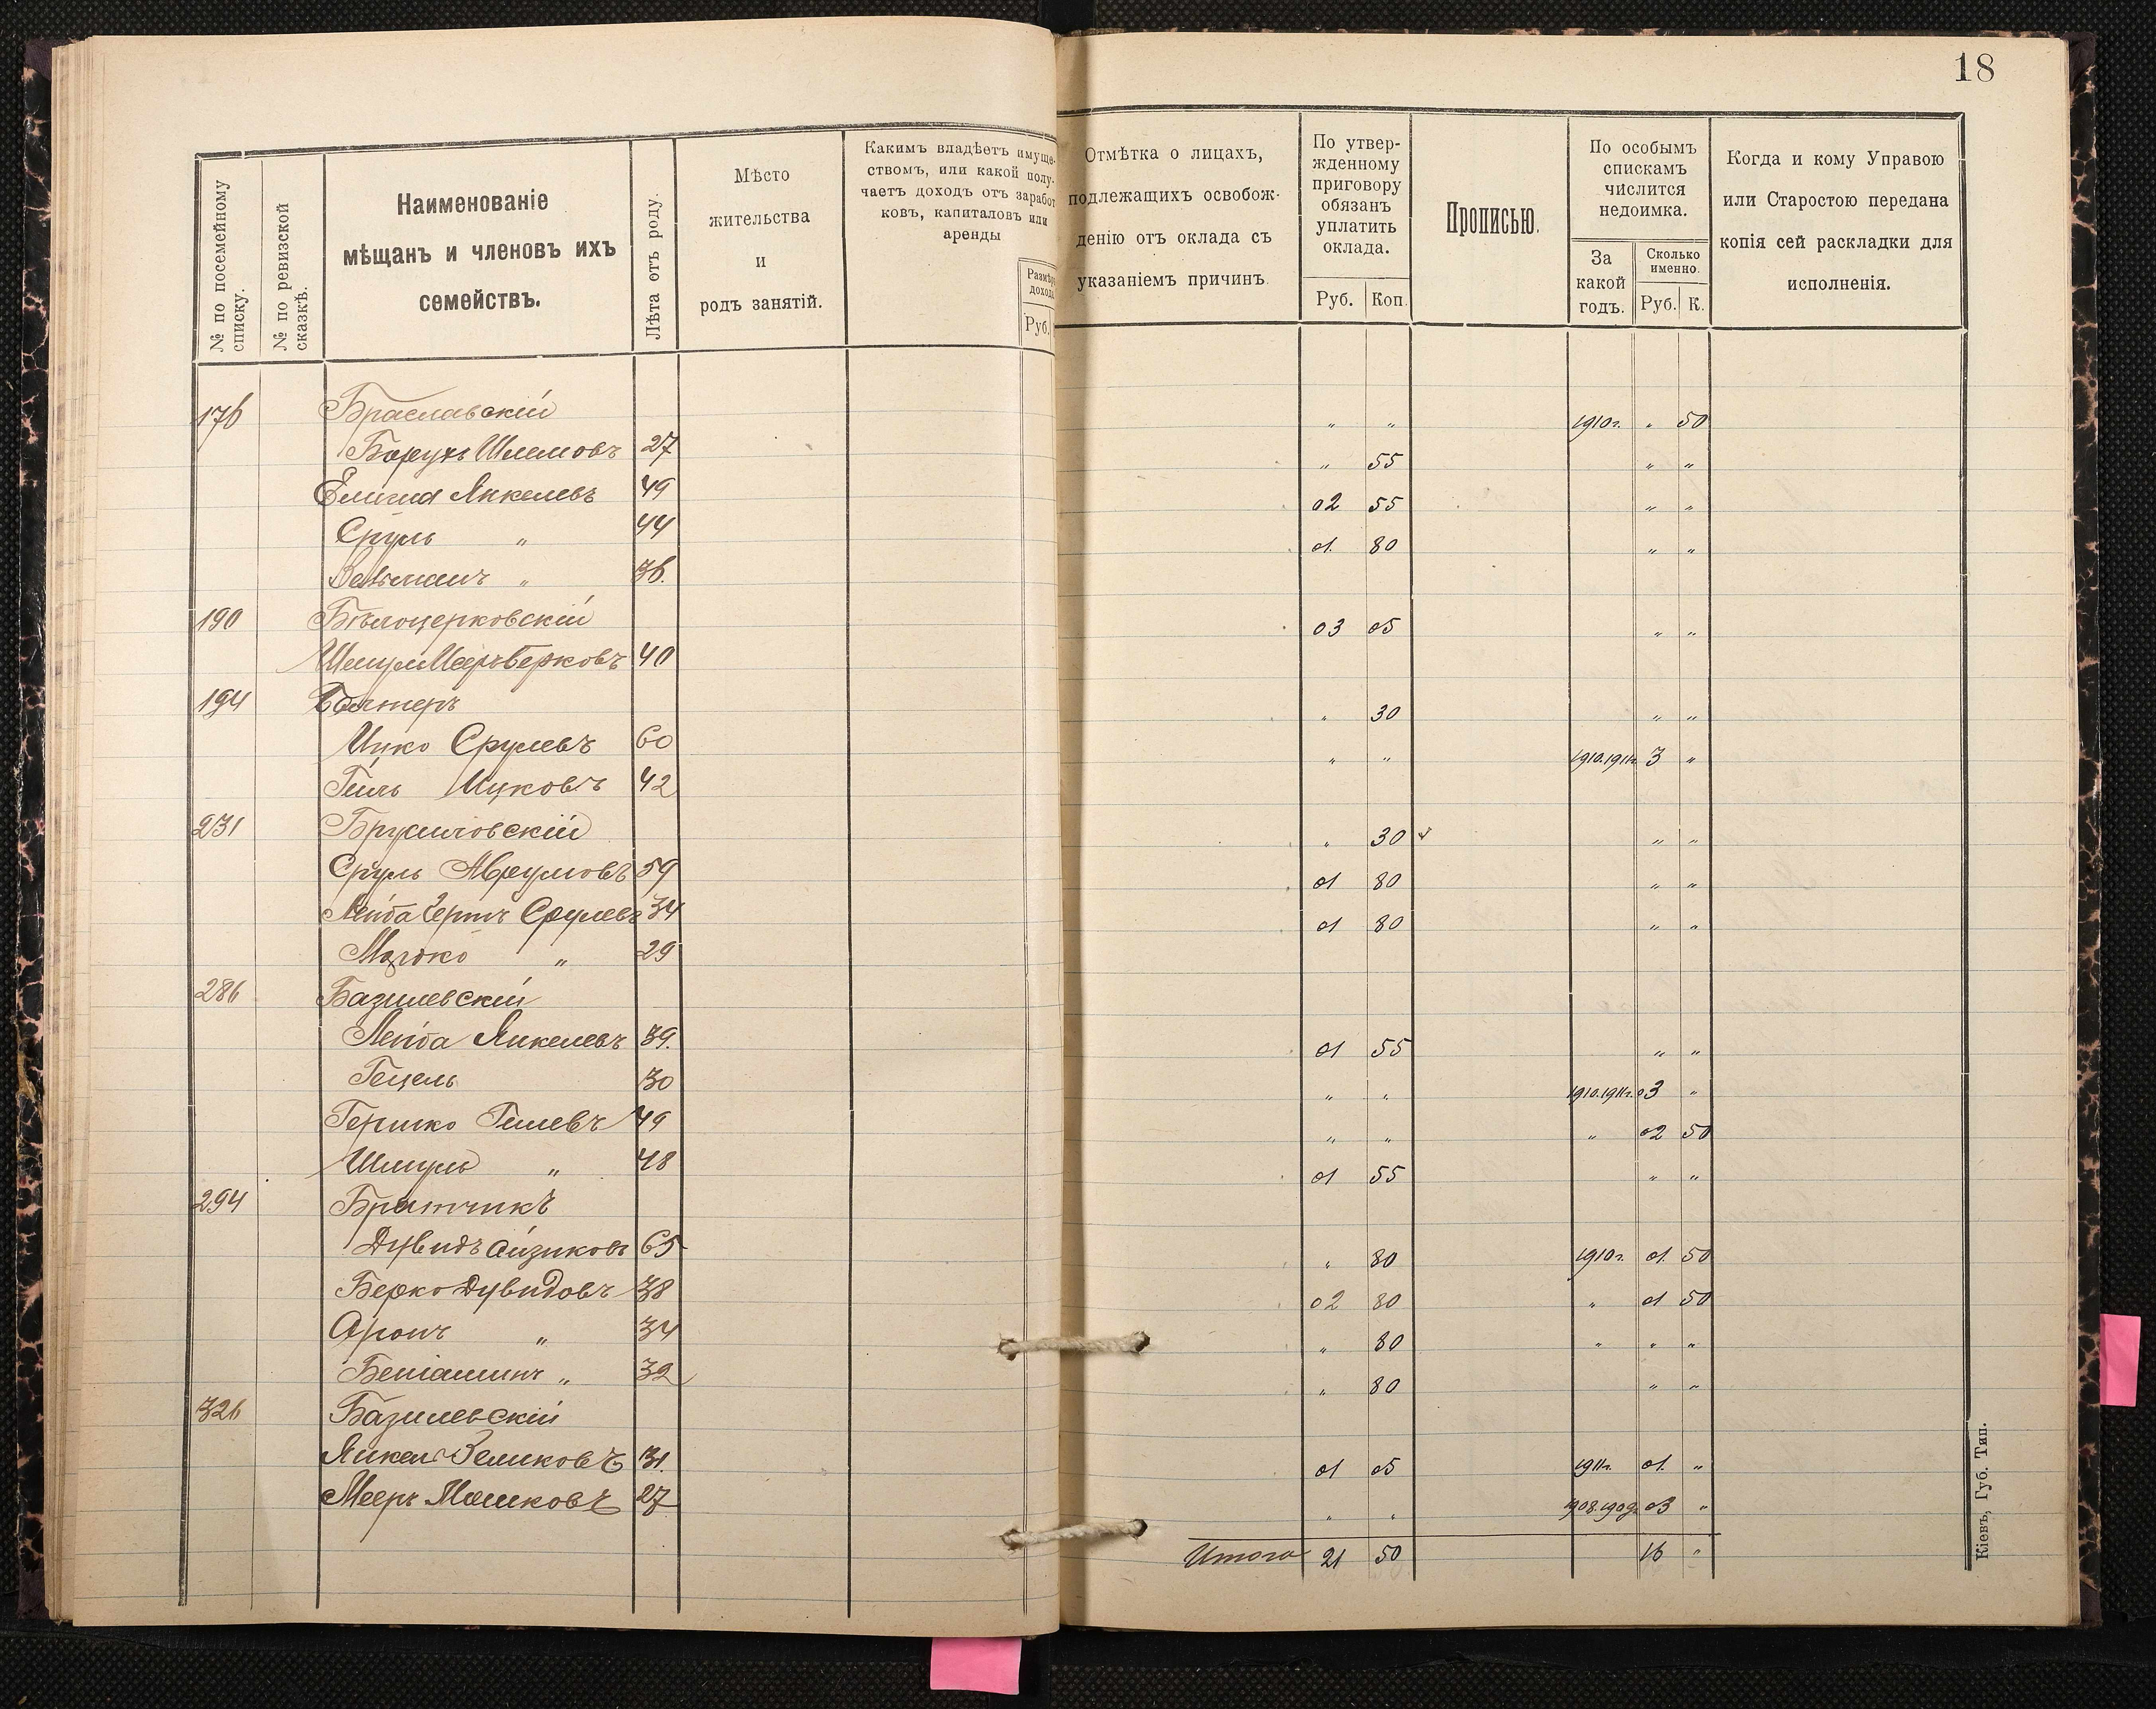 18
№ по посемейному списку.
№ по ревизской сказкѣ.
Наименованіе
мѣщанъ и членовъ ихъ
семействъ.
Лѣта отъ роду.
Мѣсто
жительства
и
родъ занятій.
Какимъ владѣетъ имуще-
ствомъ, или какой полу-
чаетъ доходъ отъ заработ
ковъ, капиталовъ или
аренды
Размѣръ
дохода
Руб.
Отмѣтка о лицахъ,
подлежащихъ освобож-
денію отъ оклада съ
указаніемъ причинъ.
По утвер-
жденному
приговору
обязанъ
уплатить
оклада.
Руб. Коп.
Прописью.
По особымъ
спискамъ
числится
недоимка.
За
какой
годъ.
Сколько
именно.
Руб. К.
Когда и кому Управою
или Старостою передана
копія сей раскладки для
исполненія.
176 Браславскій " " 1910г. " 50
Борухъ Шлемовъ 27 " 55 " "
Янкелевъ 49 02 55 " "
Сруль " 44 01. 80 " "
" 36.
190 Бѣлоцерковскій 03 05 " "
Шмулъ Мееръ Берковъ 40
194 " 30 " "
Ицко Срулевъ 60 " " 1910.1911г. 3 "
Гиль Ицковъ 42
231 Брусиловскій " 30 " "
Сруль Аврумовъ 59 01 80 " "
Лейба Герш Срулевъ 34 01 80 " "
Мошко " 29
286 Базилевскій
Лейба Янкелевъ 39. 01 55 " "
Гецель 30 " " 1910.1911г. 03 "
Гершко Гилевъ 49 " " " 02 50
Шмуль " 48 01 55 " "
294 Братчикъ
Дувидъ Айзиковъ 65 " 80 1910г. 01. 50
Берко Дувидовъ 38 02 80 " 01 50
Аронъ " 34 " 80 " " "
Беніаминъ " 32 " 80 " "
326 Базилевскій
Янкель Зеликовъ 31. 01 05 1911г. 01. "
Мееръ Мошковъ 27 " " 1908.1909г. 03 "
Итого 21 50 16 "
Кіевъ, Губ. Тип.